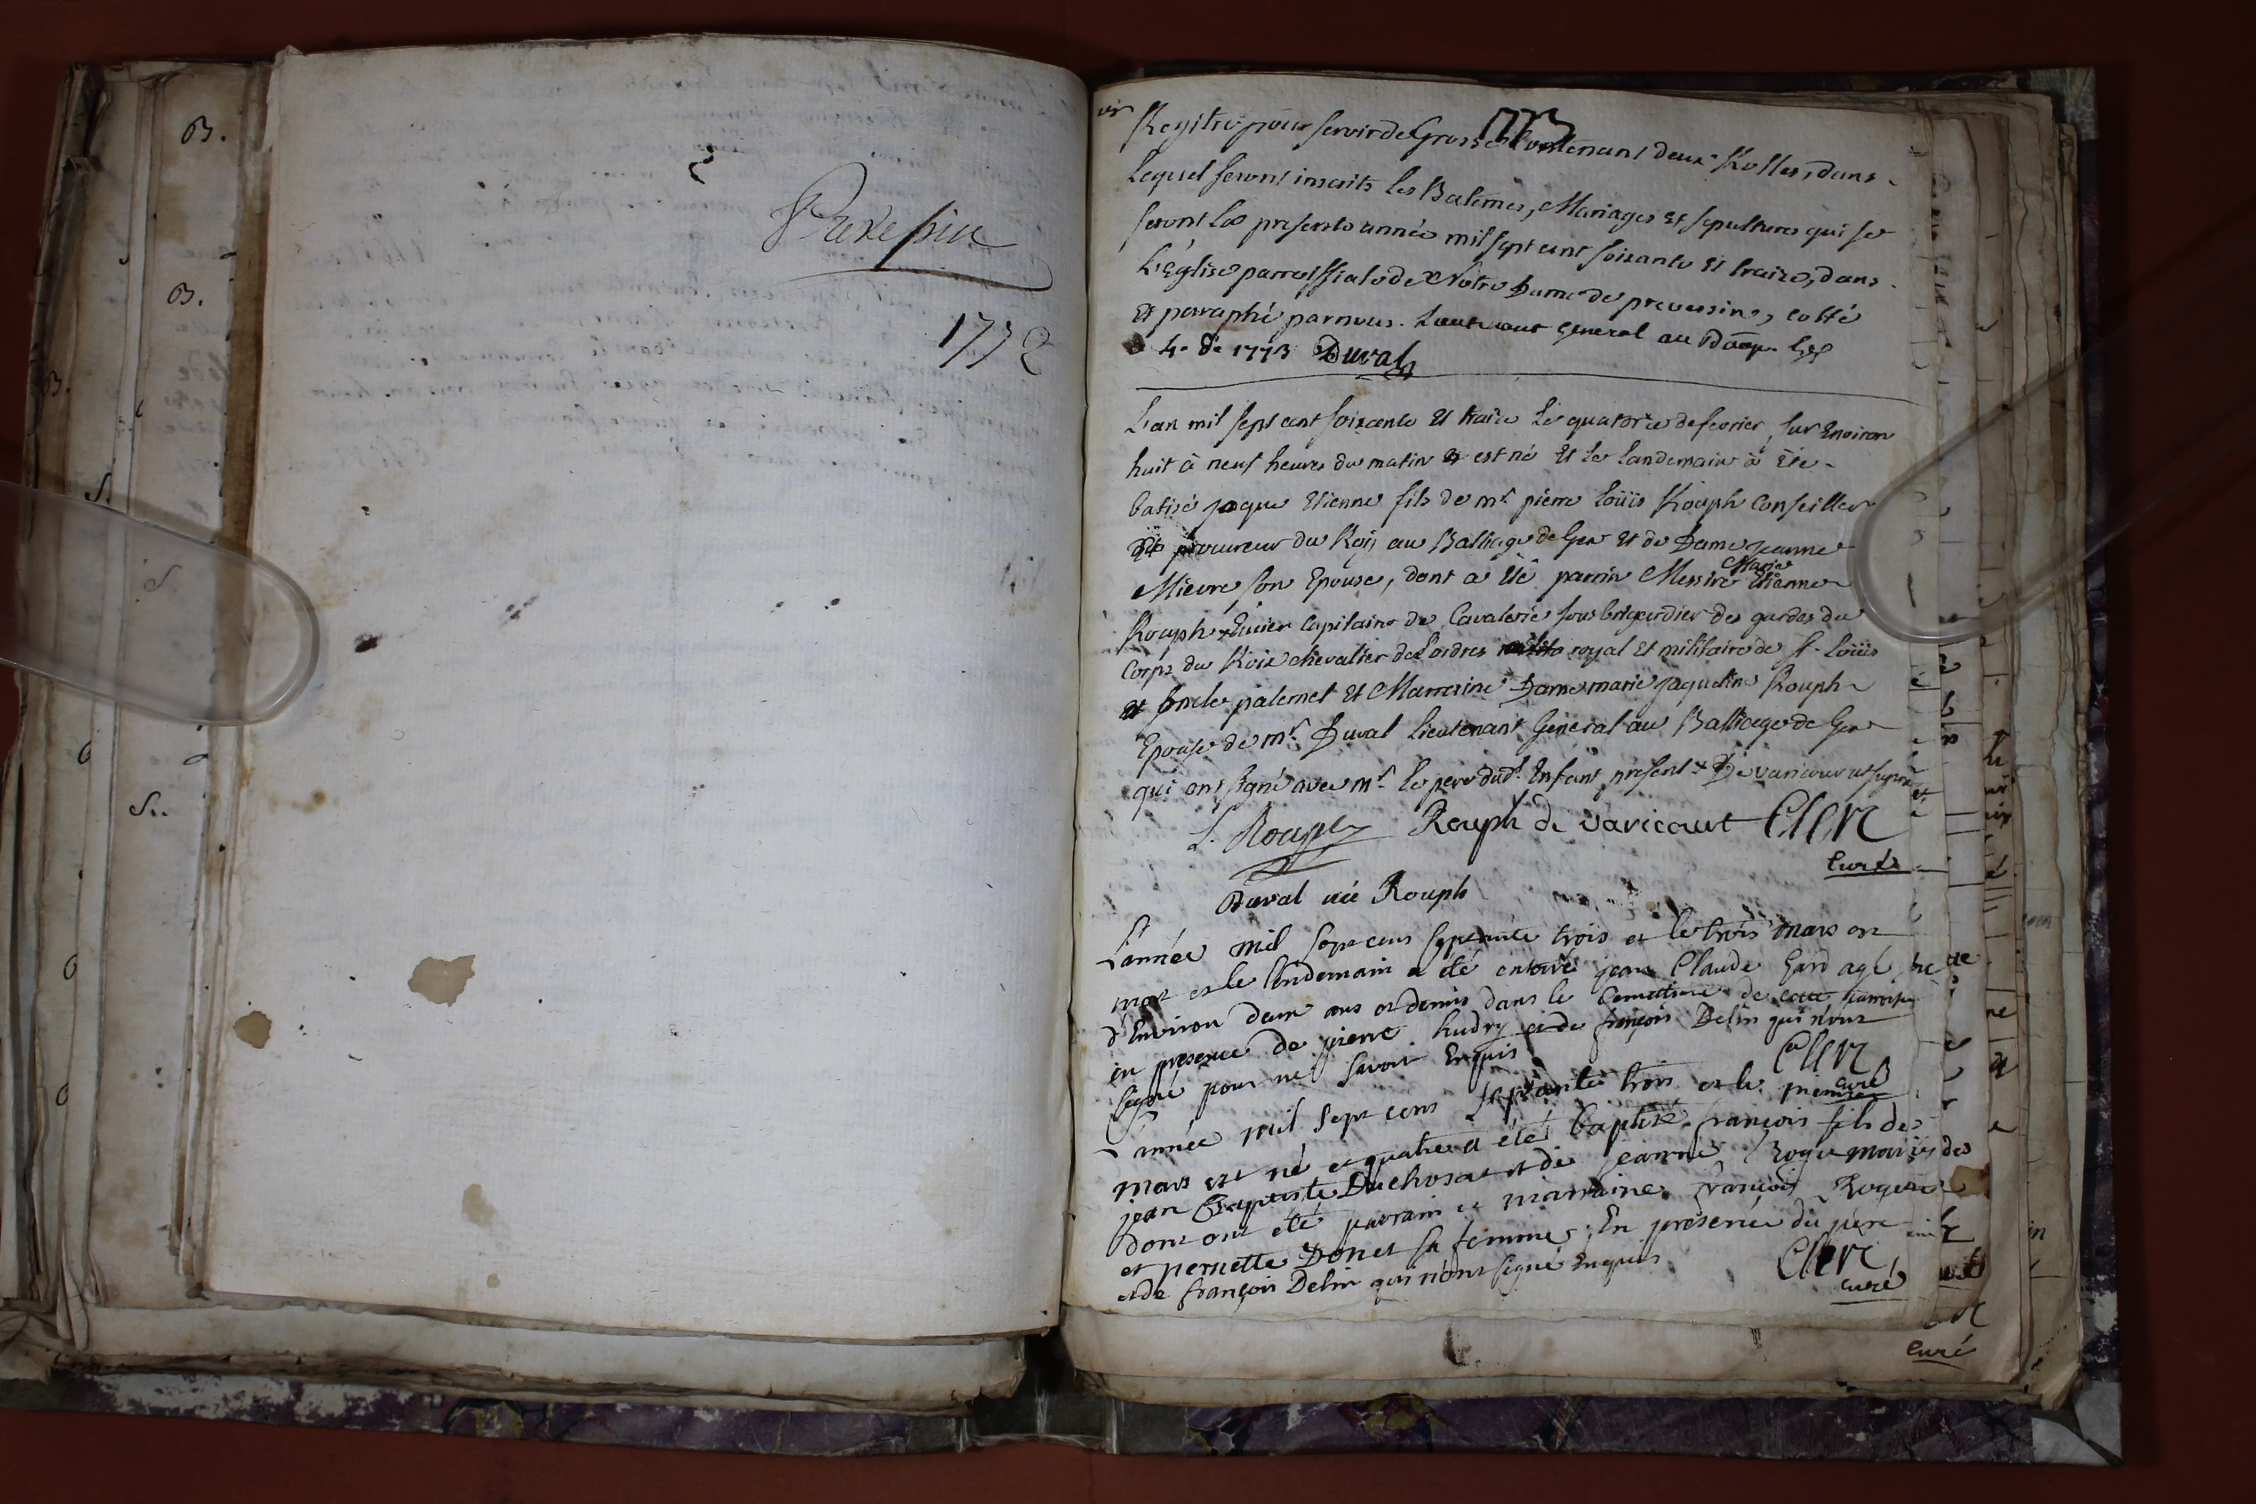 B.
B.
B.
S.
S.
S..
Prevessin
1772
1773
Registre pour servir de Grosse Contenant deux Rolles, dans
Lequel seront inscrits les Batêmes, Mariages et sepultures qui se
feront La presente année mil sept cent soixante et traize, dans
L'Eglise parroissiale de Notre Dame de prevessin, cotté
et parraphé par nous. Lieutenant general au
4e 1773 Duval
L'an mil sept cent soixante et traize le quatorze de fevrier, sur Environ
huit à neuf heures du matin est né Et le landemain à été
batisé jaque Etienne fils de mr. pierre loüis Rouph Conseiller
procureur du Roij au Balliage de Gex et de Dame jeanne
Mievre son Epouse, dont a été parrin Messire Marie Etienne
Rouph Ecuier Capitaine de Cavalerie sous brigardier des gardes du
Corps du Roix chevalier de L'ordres royal Et militaire de st. Loüis
et oncle paternel Et Marresine Dame marie jaqueline Rouph
Epouse de mr. Duval Lieutenant General au Balliage de Gex
qui ont signé avec mr. le pere dudt. Enfant present
L. Rouph Rouph de varicourt Clerc
Curé
Duval née Rouph
L'année mil sept cens septante trois et le trois mars est
mort et le lendemain a été enterré jean Claude Gard agé
d'Environ deux ans et demis dans le Cemettiere de cette parroisse
en presence de pierre hudry et de françois Delin qui n'ont
signé pour ne savoir Enquis Clerc
curé
L'année mil sept cens septante trois et le premier
mars est né et quatre a été baptisé françois fils de
jean Baptiste Duchosat et de jeanne Roger mariés
dont ont été parrain et marraine françois Roger
et pernette Donet sa femme; En presence du pere
et de françois Delin qui n'ont signé Enquis Clerc
curé
curé